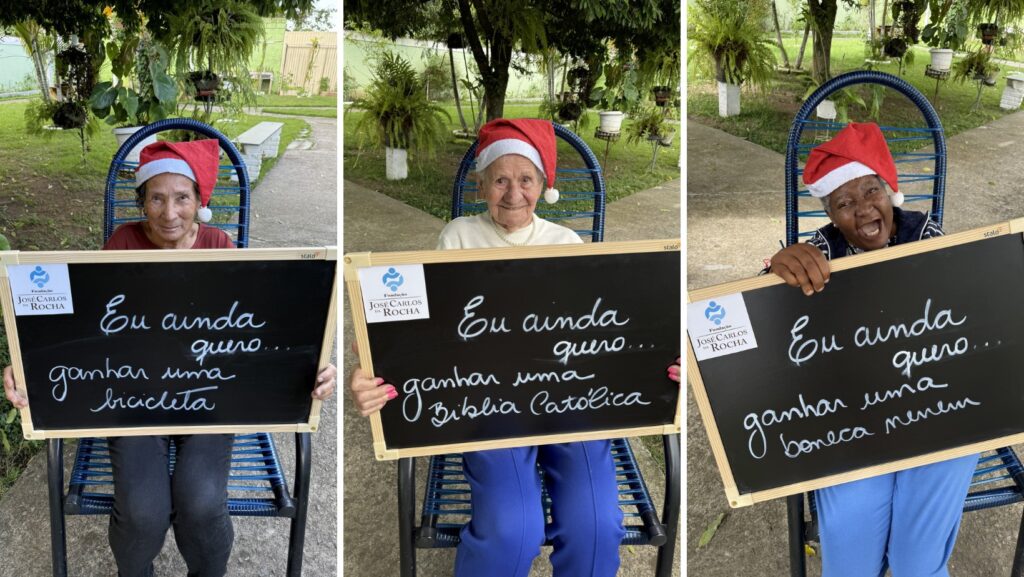 stalo
Fundação
JOSÉ CARLOS
DA ROCHA
Eu ainda
quero...
ganhar uma
bicicleta
stalo
Fundação
JOSÉ CARLOS
DA ROCHA
Eu ainda
quero...
ganhar uma
Bíblia Católica
stalo
Fundação
JOSÉ CARLOS
DA ROCHA
Eu ainda
quero...
ganhar uma
boneca nenem